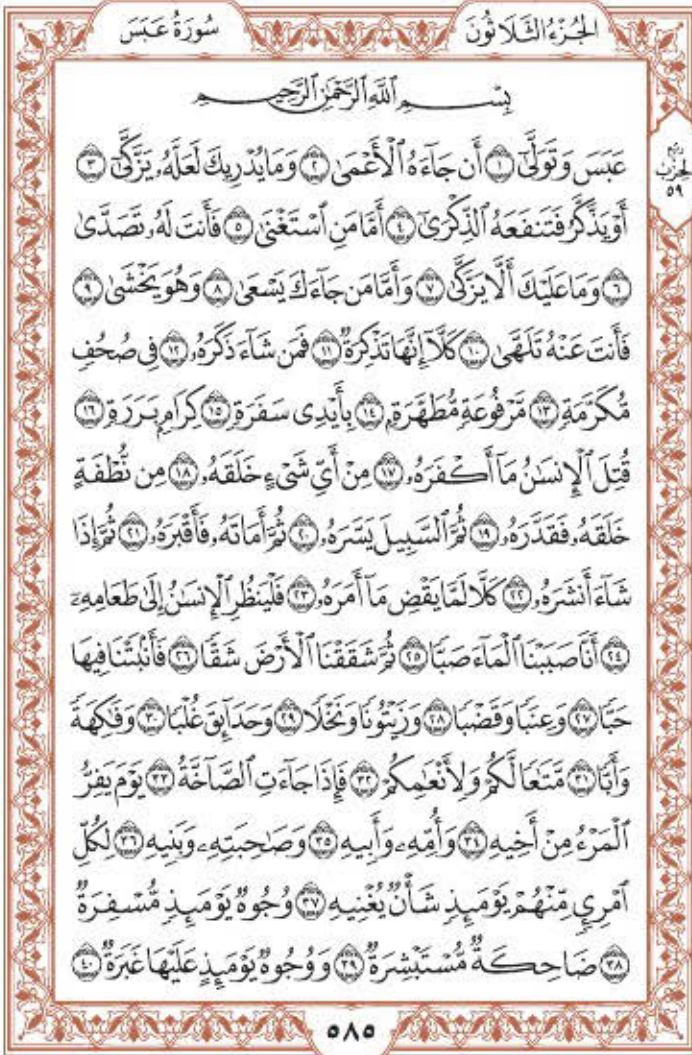 سُورَةُ عَبَسَ
الجُزْءُ الثَّلَاثُونَ
بِسْمِ ٱللَّهِ ٱلرَّحْمَٰنِ ٱلرَّحِيمِ
عَبَسَ وَتَوَلَّىٰٓ ١ أَن جَآءَهُ ٱلْأَعْمَىٰ ٢ وَمَا يُدْرِيكَ لَعَلَّهُۥ يَزَّكَّىٰٓ ٣
أَوْ يَذَّكَّرُ فَتَنفَعَهُ ٱلذِّكْرَىٰٓ ٤ أَمَّا مَنِ ٱسْتَغْنَىٰ ٥ فَأَنتَ لَهُۥ تَصَدَّىٰ
٦ وَمَا عَلَيْكَ أَلَّا يَزَّكَّىٰ ٧ وَأَمَّا مَن جَآءَكَ يَسْعَىٰ ٨ وَهُوَ يَخْشَىٰ ٩
فَأَنتَ عَنْهُ تَلَهَّىٰ ١٠ كَلَّآ إِنَّهَا تَذْكِرَةٌ ١١ فَمَن شَآءَ ذَكَرَهُۥ ١٢ فِى صُحُفٍ
مُّكَرَّمَةٍ ١٣ مَّرْفُوعَةٍ مُّطَهَّرَةٍۭ ١٤ بِأَيْدِى سَفَرَةٍ ١٥ كِرَامٍۭ بَرَرَةٍ ١٦
قُتِلَ ٱلْإِنسَٰنُ مَآ أَكْفَرَهُۥ ١٧ مِنْ أَىِّ شَىْءٍ خَلَقَهُۥ ١٨ مِن نُّطْفَةٍ
خَلَقَهُۥ فَقَدَّرَهُۥ ١٩ ثُمَّ ٱلسَّبِيلَ يَسَّرَهُۥ ٢٠ ثُمَّ أَمَاتَهُۥ فَأَقْبَرَهُۥ ٢١ ثُمَّ إِذَا
شَآءَ أَنشَرَهُۥ ٢٢ كَلَّا لَمَّا يَقْضِ مَآ أَمَرَهُۥ ٢٣ فَلْيَنظُرِ ٱلْإِنسَٰنُ إِلَىٰ طَعَامِهِۦٓ
٢٤ أَنَّا صَبَبْنَا ٱلْمَآءَ صَبًّا ٢٥ ثُمَّ شَقَقْنَا ٱلْأَرْضَ شَقًّا ٢٦ فَأَنۢبَتْنَا فِيهَا
حَبًّا ٢٧ وَعِنَبًا وَقَضْبًا ٢٨ وَزَيْتُونًا وَنَخْلًا ٢٩ وَحَدَآئِقَ غُلْبًا ٣٠ وَفَٰكِهَةً
وَأَبًّا ٣١ مَّتَٰعًا لَّكُمْ وَلِأَنْعَٰمِكُمْ ٣٢ فَإِذَا جَآءَتِ ٱلصَّآخَّةُ ٣٣ يَوْمَ يَفِرُّ
ٱلْمَرْءُ مِنْ أَخِيهِ ٣٤ وَأُمِّهِۦ وَأَبِيهِ ٣٥ وَصَٰحِبَتِهِۦ وَبَنِيهِ ٣٦ لِكُلِّ
ٱمْرِئٍ مِّنْهُمْ يَوْمَئِذٍ شَأْنٌ يُغْنِيهِ ٣٧ وُجُوهٌ يَوْمَئِذٍ مُّسْفِرَةٌ
٣٨ ضَاحِكَةٌ مُّسْتَبْشِرَةٌ ٣٩ وَوُجُوهٌ يَوْمَئِذٍ عَلَيْهَا غَبَرَةٌ ٤٠
ربع
الحزب
٥٩
٥٨٥